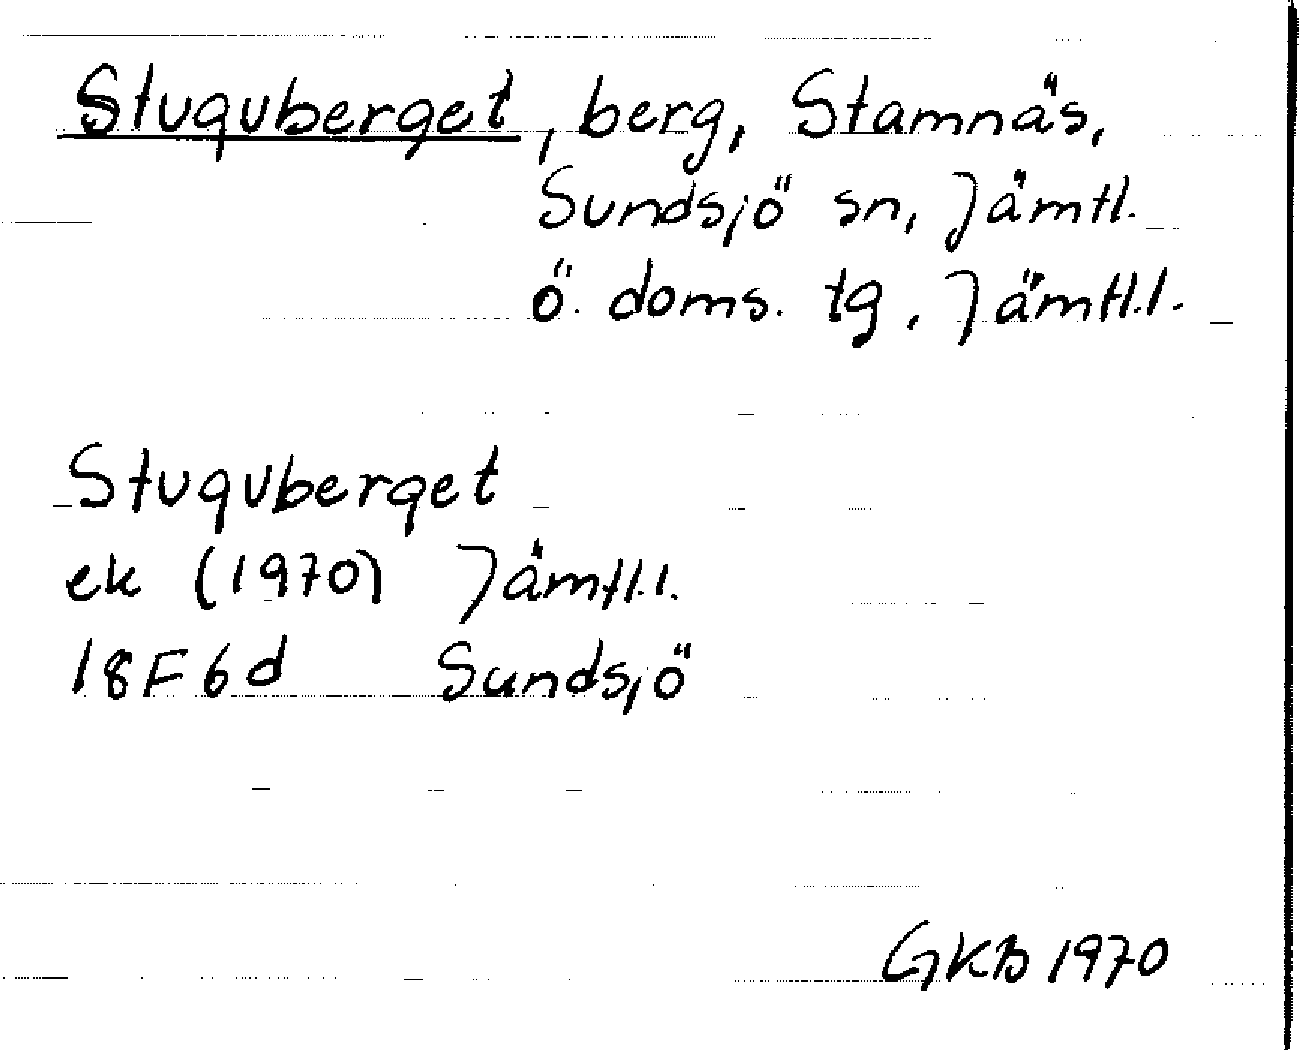 Stuguberget, berg, Stamnäs,
Sundsjö sn, Jämtl.
ö. doms. tg, Jämtl.l.
Stuguberget
ek (1970) Jämtl.l.
18F6d Sundsjö
GKB 1970